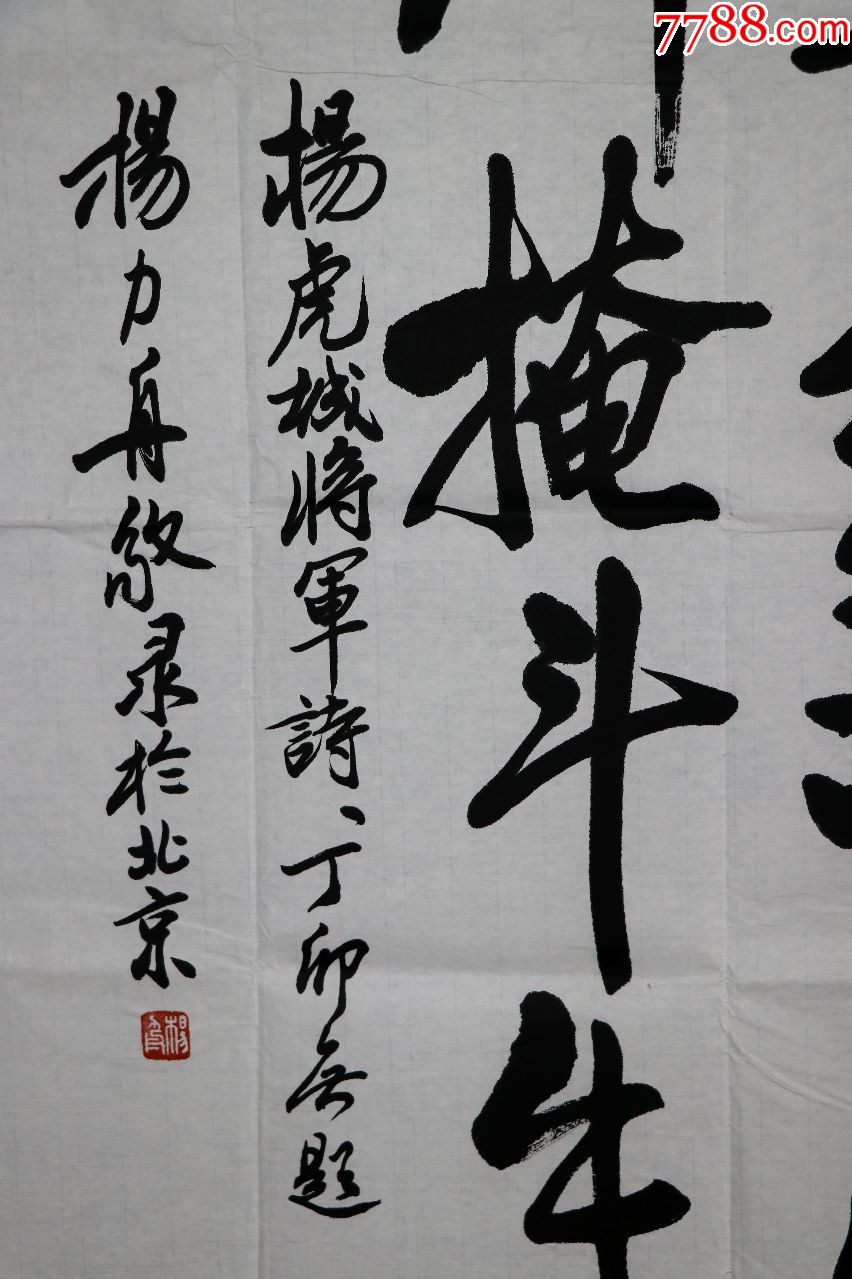 7788.com
掩斗牛
楊虎城將軍詩、丁卯无題
楊力舟敬录於北京
楊